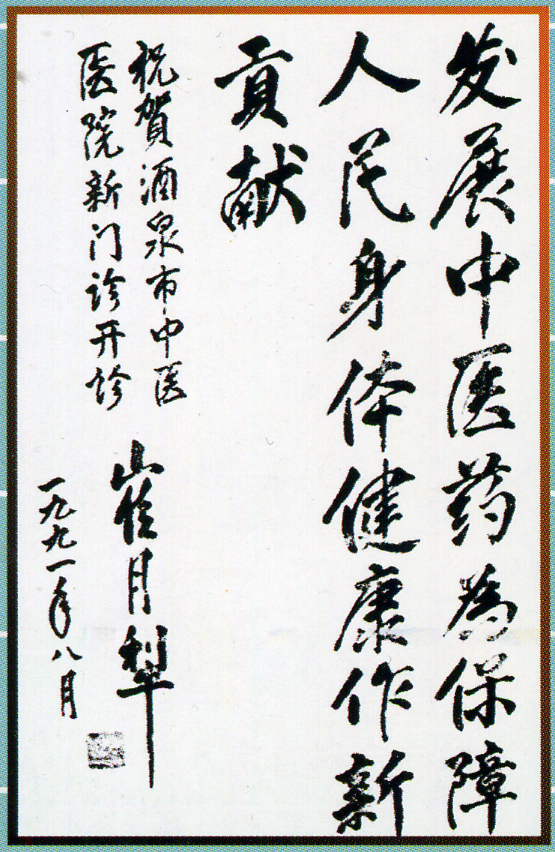 发展中医药为保障
人民身体健康作新
贡献
祝贺酒泉市中医
医院新门诊开诊
崔月犁
一九九一年八月